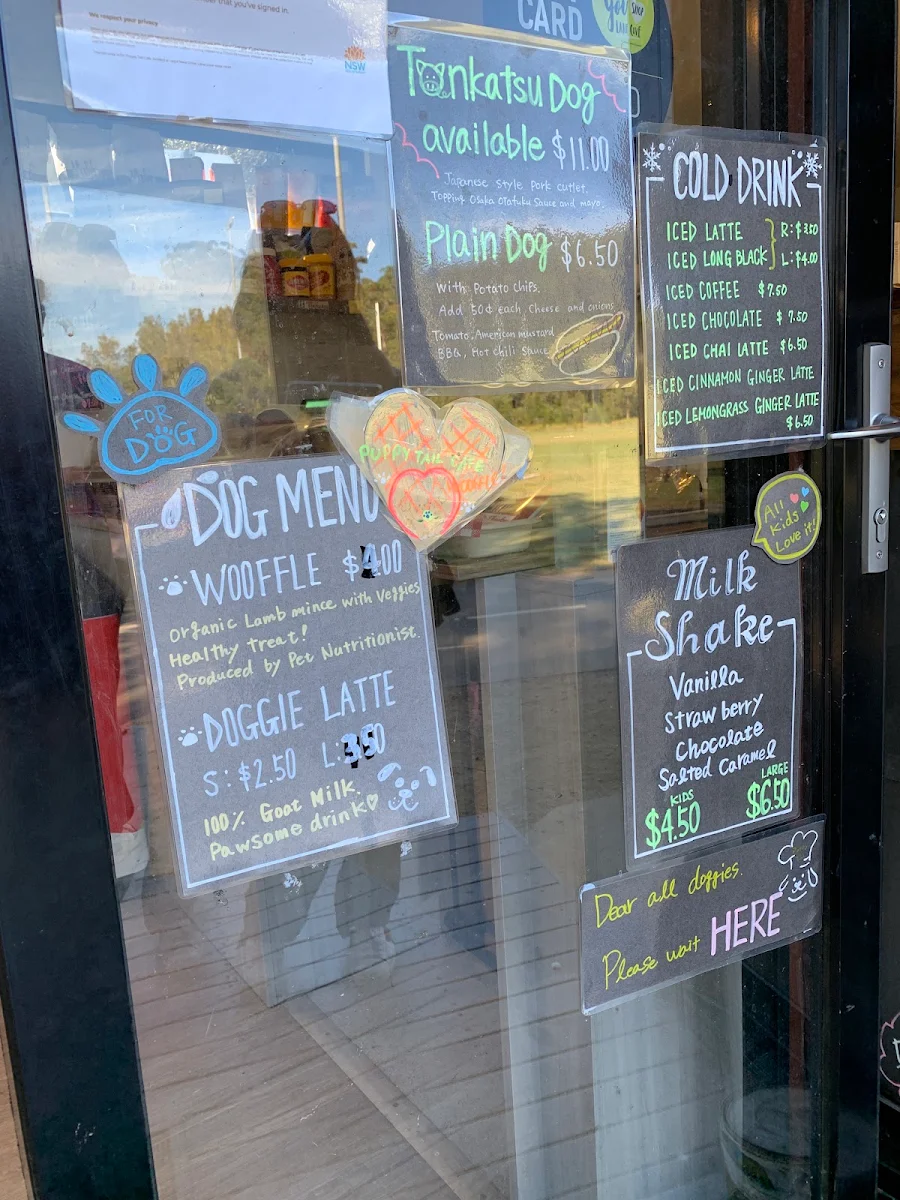 that you've signed in.
We respect your privacy
NSW
CARD
Tonkatsu Dog
available $11.00
Japanese style pork cutlet.
Topping Osaka Otafuku Sauce and mayo.
Plain Dog $6.50
With Potato Chips.
Add 50¢ each, Cheese and onions
Tomato, American mustard
BBQ, Hot Chili Sauce
COLD DRINK
ICED LATTE R: $3.50
ICED LONG BLACK L: $4.00
ICED COFFEE $7.50
ICED CHOCOLATE $7.50
ICED CHAI LATTE $6.50
ICED CINNAMON GINGER LATTE
ICED LEMONGRASS GINGER LATTE
$6.50
FOR
DOG
PUPPY TAIL CAFE
DOG MENU
WOOFFLE $4.00
Organic Lamb mince with Veggies
Healthy Treat!
Produced by Pet Nutritionist.
DOGGIE LATTE
S: $2.50 L: 350
100% Goat Milk.
Pawsome drink♡
All
Kids
Love it!
Milk
Shake
Vanilla
Strawberry
Chocolate
Salted Caramel
KIDS LARGE
$4.50 $6.50
Dear all doggies.
Please wait HERE